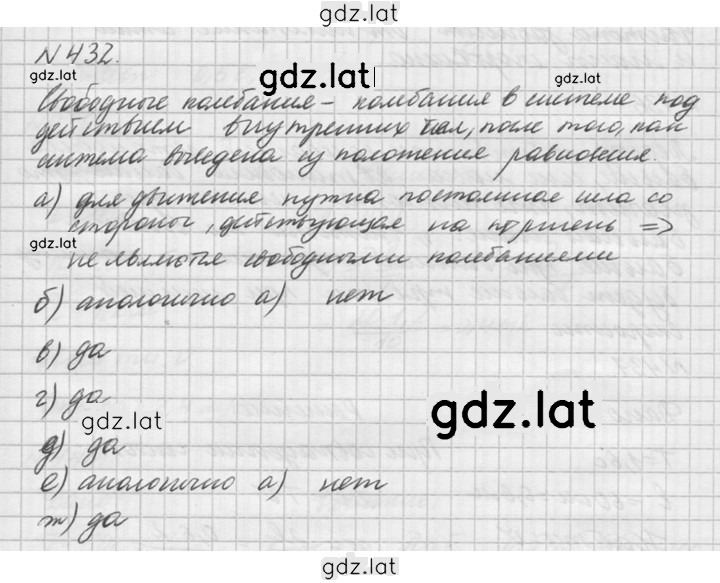 gdz.lat
N 432.
gdz.lat
gdz.lat
gdz.lat
Свободные колебания – колебания в системе под
действием внутренних сил, после того, как
система выведена из положения равновесия.
а) для движения нужна постоянное сила со
стороны, действующая на поршень =>
gdz.lat
не являются свободными колебаниями
б) аналогично а) нет
в) да
г) да
gdz.lat
gdz.lat
д) да
е) аналогично а) нет
ж) да
gdz.lat